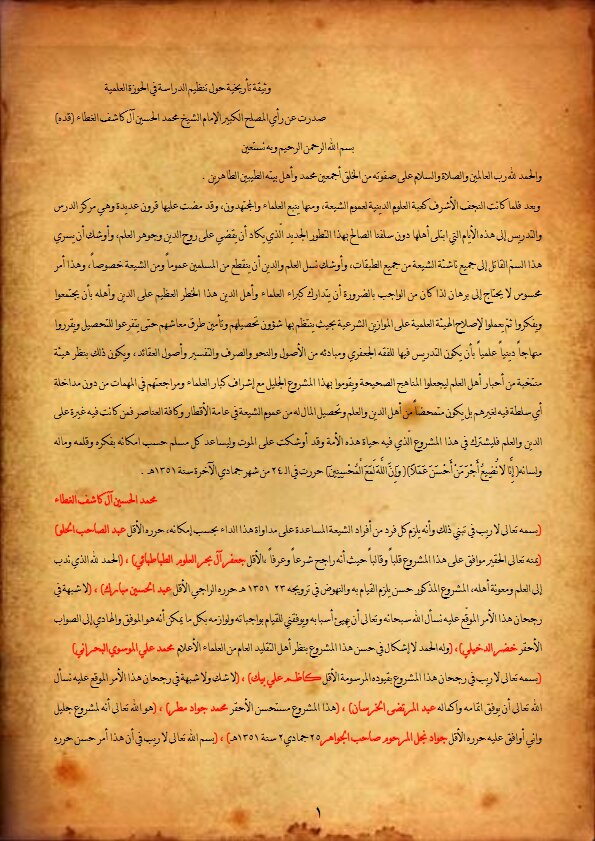 وثيقة تأريخية حول تنظيم الدراسة في الحوزة العلمية
صدرت عن رأي المصلح الكبير الإمام الشيخ محمد الحسين آل كاشف الغطاء (قده)
بسم الله الرحمن الرحيم وبه نستعين
والحمد لله رب العالمين والصلاة والسلام على صفوته من الخلق أجمعين محمد وأهل بيته الطيبين الطاهرين .
وبعد فلما كانت النجف الأشرف كعبة العلوم الدينية لعموم الشيعة، ومنها ينبع العلماء والمجتهدون، وقد مضت عليها قرون عديدة وهي مركز الدرس
والتدريس إلى هذه الأيام التي ابتلى أهلها دون سلفنا الصالح بهذا التطور الجديد الذي يكاد أن يقضي على روح الدين وجوهر العلم، وأوشك أن يسري
هذا السمّ القاتل إلى جميع ناشئة الشيعة من جميع الطبقات، وأوشك نسل العلم والدين أن ينقطع من المسلمين عموماً ومن الشيعة خصوصاً، وهذا أمر
محسوس لا يحتاج إلى برهان لذا كان من الواجب بالضرورة أن يتدارك كبراء العلماء وأهل الدين هذا الخطر العظيم على الدين وأهله بأن يجتمعوا
ويفكروا ثمّ يعملوا لإصلاح الهيئة العلمية على الموازين الشرعية بحيث ينتظم بها شؤون تحصيلهم وتأمين طرق معاشهم حتى يتفرغوا للتحصيل ويقرروا
منهاجاً دينياً علمياً بأن يكون التدريس فيها للفقه الجعفري ومبادئه من الأصول والنحو والصرف والتفسير وأصول العقائد، ويكون ذلك بنظر هيئة
منتخبة من أحبار أهل العلم ليجعلوا المناهج الصحيحة ويقوموا بهذا المشروع الجليل مع إشراف كبار العلماء ومراجعتهم في المهمات من دون مداخلة
أي سلطة فيه لغيرهم بل يكون متمحضاً من أهل الدين والعلم وتحصيل المال له من عموم الشيعة في عامة الأقطار وكافة العناصر فمن كانت فيه غيرة على
الدين والعلم فليشترك في هذا المشروع الّذي فيه حياة هذه الأمة وقد أوشكت على الموت وليساعد كل مسلم حسب امكانه بفكره وقلمه وماله
ولسانه(إِنَّا لَا نُضِيعُ أَجْرَ مَنْ أَحْسَنَ عَمَلاً)(وَإِنَّ اللَّهَ لَمَعَ الْمُحْسِنِينَ) حررت في الـ٢٤ من شهر جمادي الآخرة سنة ١٣٥١هـ .
محمد الحسين آل كاشف الغطاء
(بسمه تعالى لا ريب في تبني ذلك وأنه يلزم كل فرد من أفراد الشيعة المساعدة على مداواة هذا الداء بحسب إمكانه، حرره الأقل عبد الصاحب الحلو)
(بمنه تعالى الحقير موافق على هذا المشروع قلباً وقالباً حيث أنه راجح شرعاً وعرفاً بالأقل جعفر آل بحر العلوم الطباطبائي) ، (الحمد لله الذي ندب
إلى العلم ومعونة أهله، المشروع المذكور حسن يلزم القيام به والنهوض في ترويجه ٢٣ ١٣٥١ هـ حرره الراجي الأقل عبد الحسين مبارك) ، (لا شبهة في
رجحان هذا الأمر الموقّع عليه نسأل الله سبحانه وتعالى أن يهيئ أسبابه ويوفقني للقيام بواجباته ولوازمه بكل ما يمكن أنه هو الموفق والهادي إلى الصواب
الأحقر خضر الدخيلي) ، (وله الحمد لا إشكال في حسن هذا المشروع بنظر أهل التقليد العام من العلماء الأعلام محمد علي الموسوي البحراني)
(بسمه تعالى لا ريب في رجحان هذا المشروع بقيوده المرسومة الأقل كاظم علي بيك) ، (لا شك ولا شبهة في رجحان هذا الأمر الموقع عليه نسأل
الله تعالى أن يوفق اتمامه واكماله عبد المرتضى الخرسان) ، (هذا المشروع مستحسن الأحقر محمد جواد مطر) ، (هو الله تعالى أنه لمشروع جليل
واني أوافق عليه حرره الأقل جواد نجل المرحوم صاحب الجواهر ٢٥ جمادي٢ سنة ١٣٥١هـ) ، (بسم الله تعالى لا ريب في أن هذا أمر حسن حرره
١